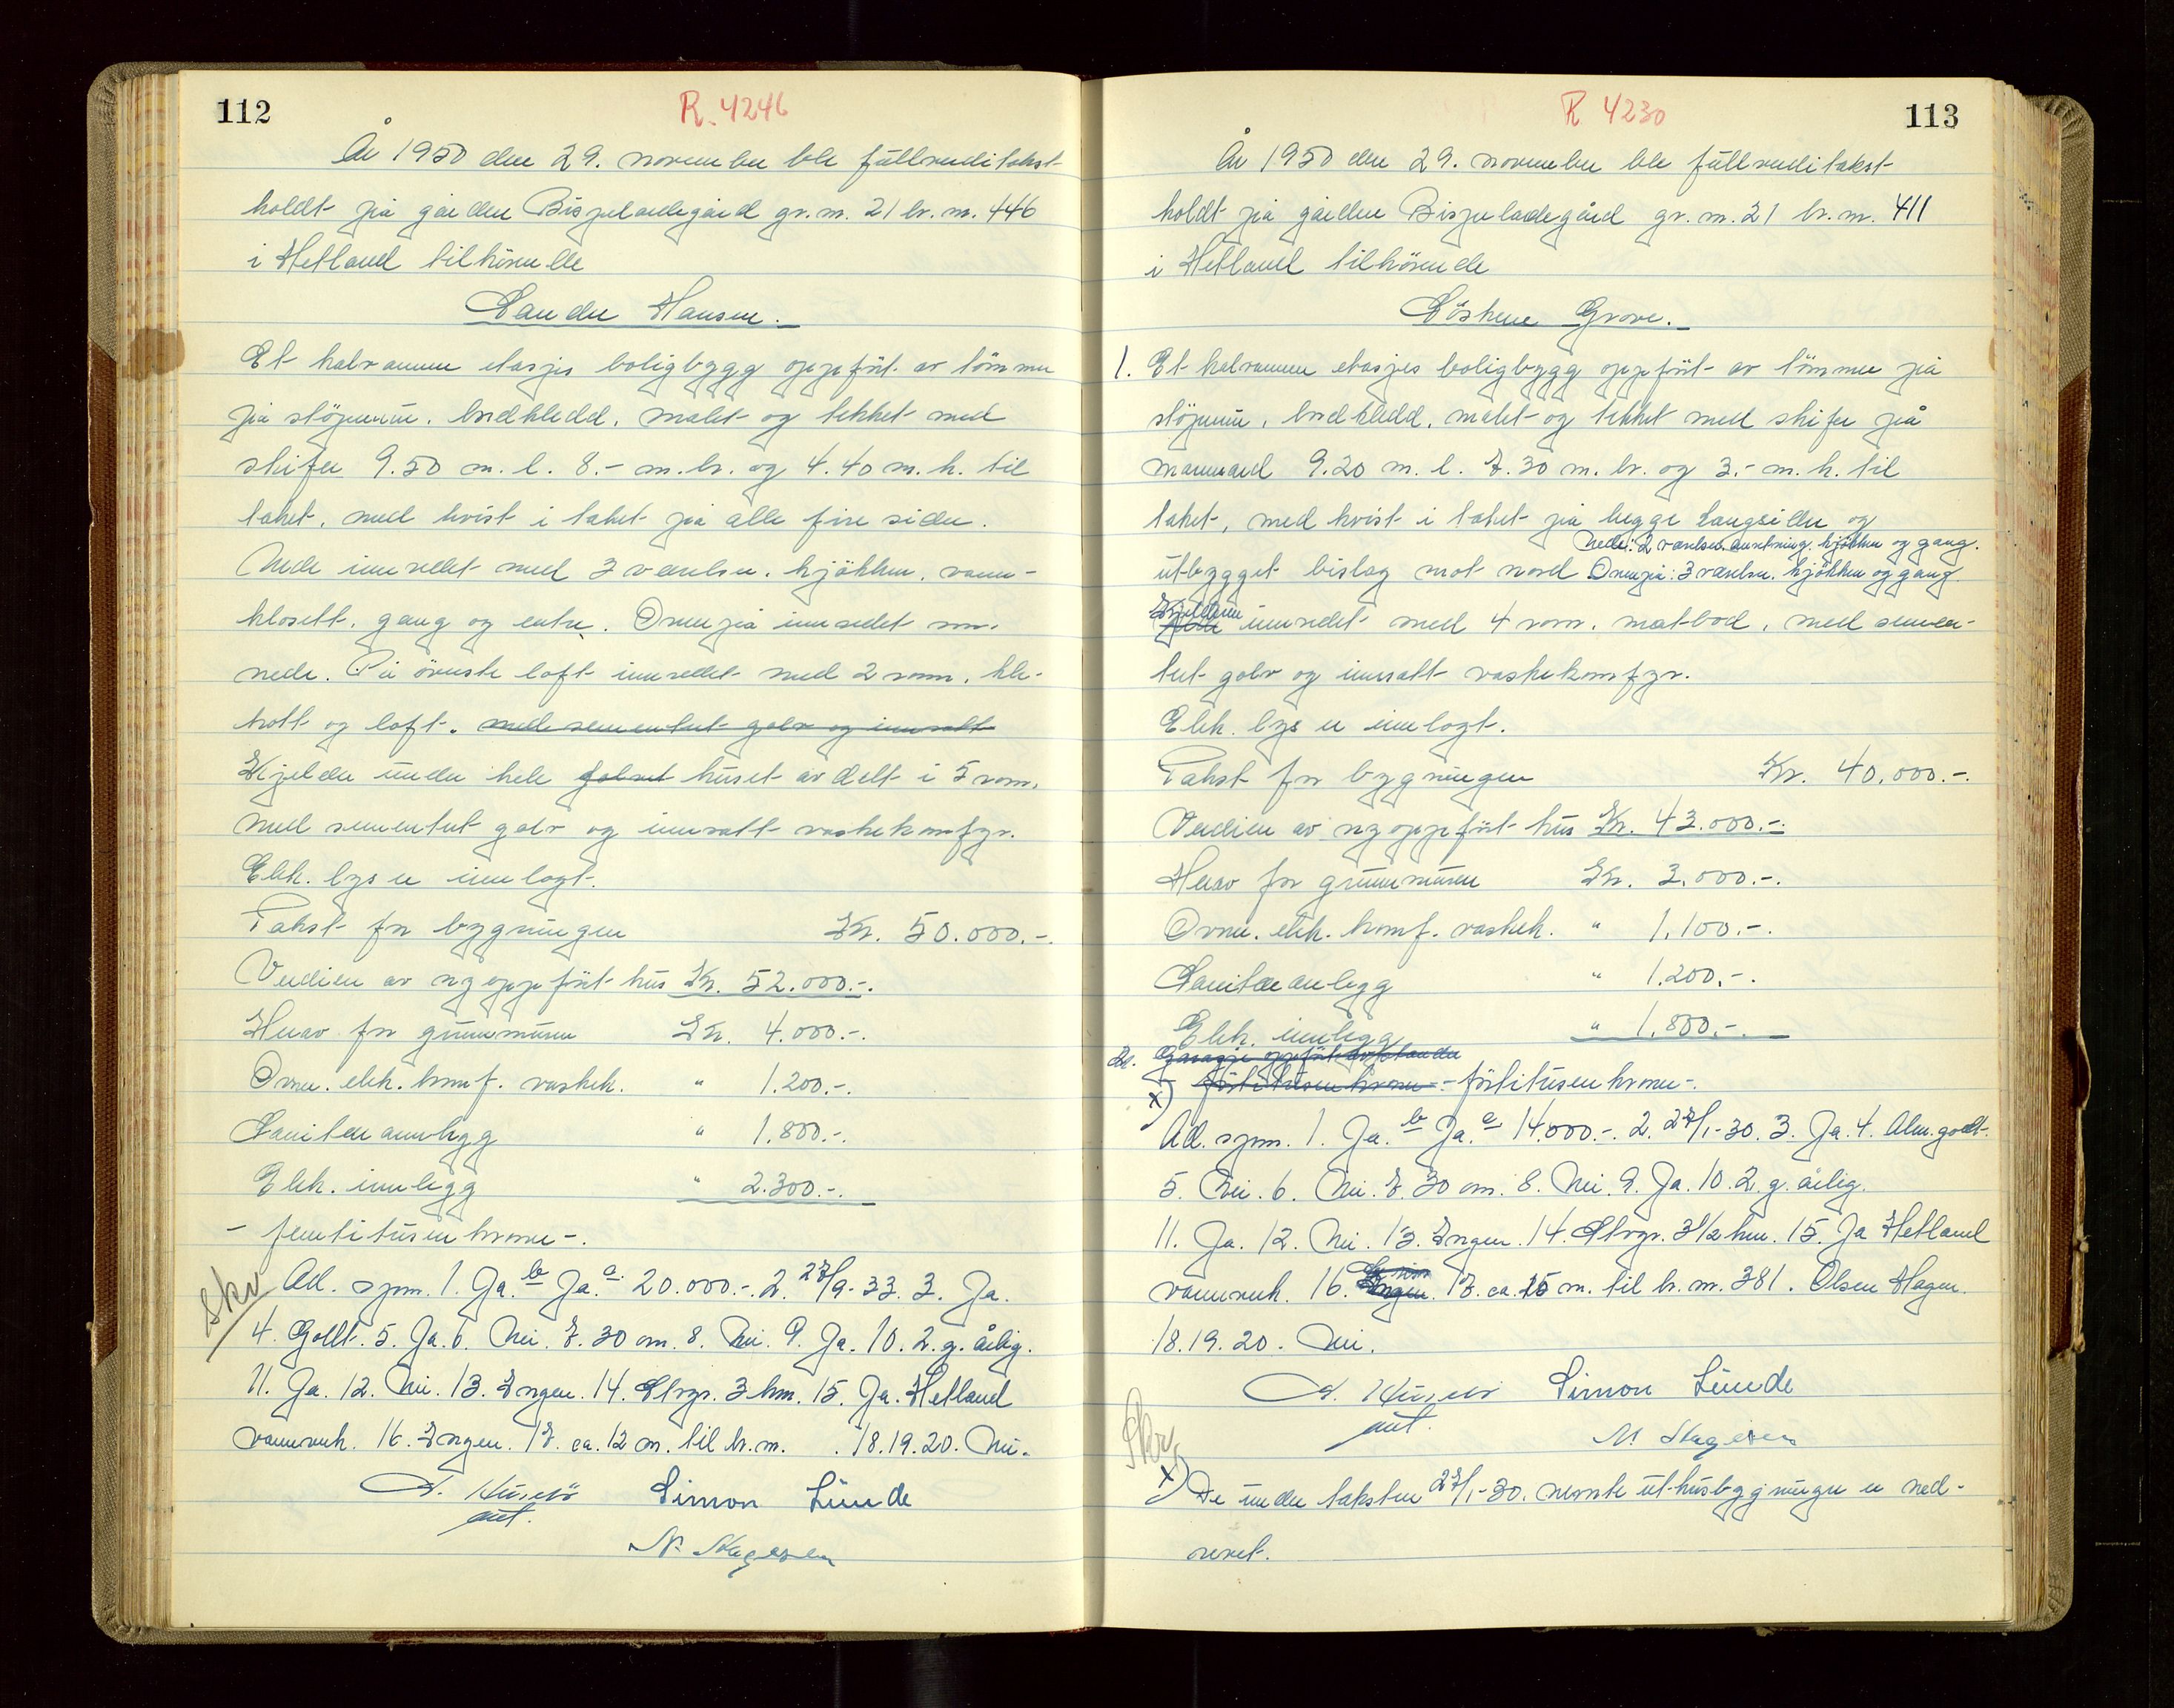 112
R. 4246
År 1950 den 29. november ble fullverditakst
holdt på gården Bispeladegård gr.nr. 21 br.nr. 446
i Hetland tilhørende
Sander Hansen.
Et halvannen etasjes boligbygg oppført av tømmer
på støpemur, bordkledd, malet og tekket med
skifer 9.50 m. l. 8.- m. br. og 4.40 m. h. til
taket, med kvist i taket på alle fire sider.
Nede innredet med 3 værelser, kjøkken, vann-
klosett, gang og entre. Ovenpå innredet som
nede. På øverste loft innredet med 2 rom, kle-
kott og loft. med sementert golv og innsatt
Kjelder under hele golvet huset avdelt i 5 rom,
med sementert golv og innsatt vaskekomfyr.
Elek. lys er innlagt.
Takst for bygningen Kr. 50.000.-.
Verdien av nyoppført hus Kr. 52.000.-.
Herav for grunnmuren Kr. 4.000.-.
Ovner, elek. komf. vaskek. " 1.200.-.
Sanitæranlegg " 1.800.-.
Elek. innlegg " 2.300.-.
- femtitusen kroner -.
Skv
Ad. spm. 1. Ja. b Ja. c. 20.000.-. 2. 27/9-33. 3. Ja.
4. Godt. 5. Ja. 6. Nei. 7. 30 cm. 8. Nei. 9. Ja. 10. 2. g. årlig.
11. Ja. 12. Nei. 13. Ingen. 14. Stvgr. 3 km. 15. Ja. Hetland
vannverk. 16. Ingen. 17. ca. 12 m. til br.nr. . 18.19.20. Nei.
Simon Lunde
113
R 4230
År 1950 den 29. november ble fullverditakst
holdt på gården Bispeladegård gr.nr. 21 br.nr. 411
i Hetland tilhørende
Søskene Grove.
1. Et halvannen etasjes boligbygg oppført av tømmer på
støpemur, bordkledd, malet og tekket med skifer på
mannard 9.20 m. l. 7.30 m. br. og 3.- m. h. til
taket, med kvist i taket på begge langsider og
Nede: 2 værelser, anretning, kjøkken og gang.
utbygget bislag mot nord Ovenpå: 3 værelser, kjøkken og gang
Kjelderen
Nede innredet med 4 rom, matbod, med semen-
tert golv og innsatt vaskekomfyr.
Elek. lys er innlagt.
Takst for bygningen Kr. 40.000.-.
Verdien av nyoppført hus Kr. 43.000.-.
Herav for grunnmuren Kr. 3.000.-.
Ovner, elek. komf. vaskek. " 1.100.-.
Sanitæranlegg " 1.200.-.
Elek. innlegg " 1.800.-.
2. Garasje oppført
x) førtitusen kroner - førtitusen kroner -.
Ad. spm. 1. Ja. b Ja. c 14.000.-. 2. 27/1-30. 3. Ja. 4. Alm. godt.
5. Nei. 6. Nei. 7. 30 cm. 8. Nei. 9. Ja. 10. 2. g. årlig.
11. Ja. 12. Nei. 13. Ingen. 14. Stvgr. 3 1/2 km. 15. Ja Hetland
vannverk. 16. Ingen. 17. ca. 15 m. til br.nr. 381. Olsen Hagen.
18.19.20. Nei.
Simon Lunde
Skv
x) De under taksten 27/1-30. nevnte uthusbygninger er ned-
revet.